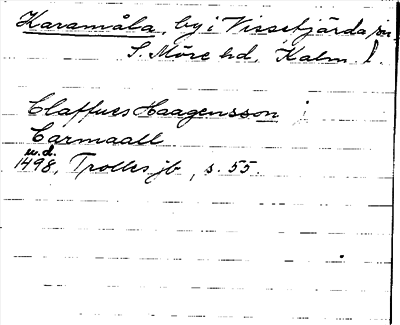 Karamåla, by i Vissefjärda sn,
S. Möre hd, Kalm. l.
Claffues Haagensson i
Carmaall
u.d.
1498, Trolles jb, s. 55.